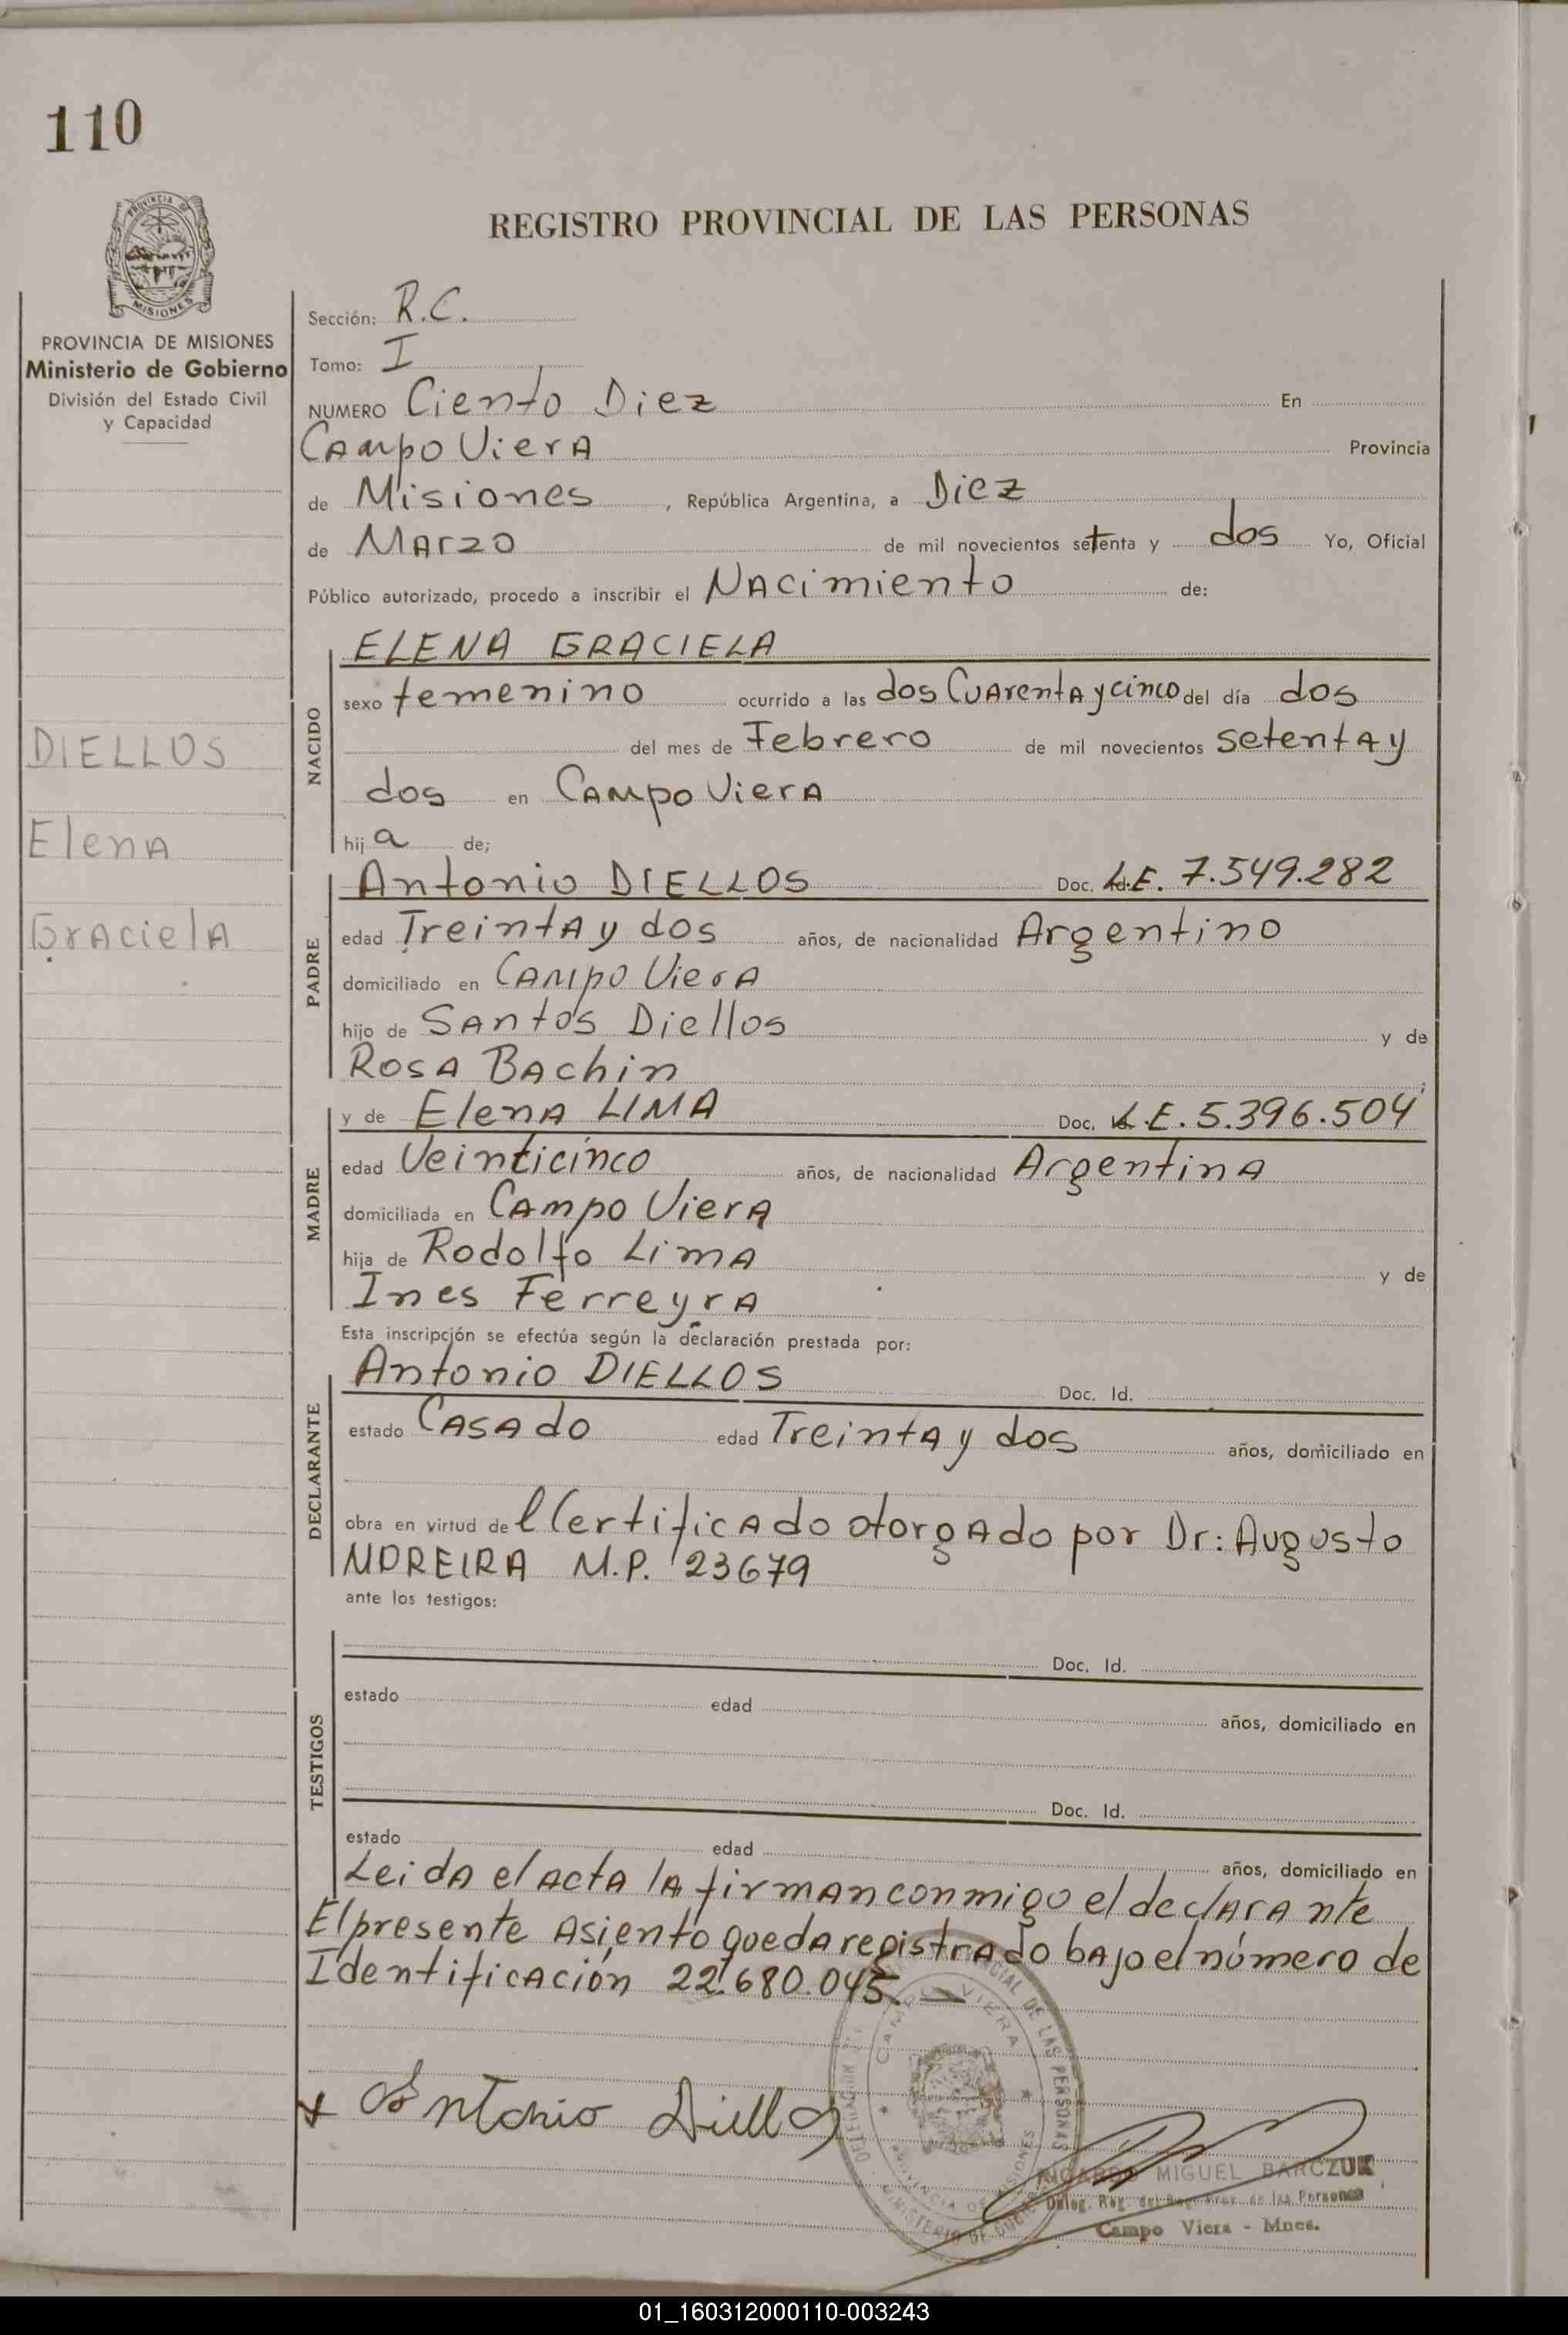 110
PROVINCIA DE MISIONES
PROVINCIA DE MISIONES
Ministerio de Gobierno
División del Estado Civil
y Capacidad
DIELLOS
Elena
Graciela
REGISTRO PROVINCIAL DE LAS PERSONAS
Sección: R.C.
Tomo: I
NUMERO Ciento Diez En
Campo Viera Provincia
de Misiones, República Argentina, a Diez
de Marzo de mil novecientos setenta y dos Yo, Oficial
Público autorizado, procedo a inscribir el Nacimiento de:
NACIDO
ELENA GRACIELA
sexo femenino ocurrido a las dos Cuarenta y cinco del día dos
del mes de Febrero de mil novecientos setenta y
dos en Campo Viera
hija de;
PADRE
Antonio DIELLOS Doc. L.E. 7.549.282
edad Treinta y dos años, de nacionalidad Argentino
domiciliado en Campo Viera
hijo de Santos Diellos y de
Rosa Bachin
MADRE
y de Elena LIMA Doc. L.E. 5.396.504
edad Veinticinco años, de nacionalidad Argentina
domiciliada en Campo Viera
hija de Rodolfo Lima y de
Ines Ferreyra
Esta inscripción se efectúa según la declaración prestada por:
DECLARANTE
Antonio DIELLOS Doc. Id.
estado Casado edad Treinta y dos años, domiciliado en
obra en virtud del Certificado otorgado por Dr: Augusto
MOREIRA M.P. 23679
ante los testigos:
TESTIGOS
Doc. Id.
estado edad años, domiciliado en
Doc. Id.
estado edad años, domiciliado en
Leida el acta la firman conmigo el declarante
El presente Asiento queda registrado bajo el número de
Identificación 22.680.045.-
Antonio Diellos
CAMPO VIERA
PROVINCIA DE MISIONES
RICARDO MIGUEL BARCZUK
Deleg. Reg. del Reg. Prov. de las Personas
Campo Viera - Mnes.
01_160312000110-003243